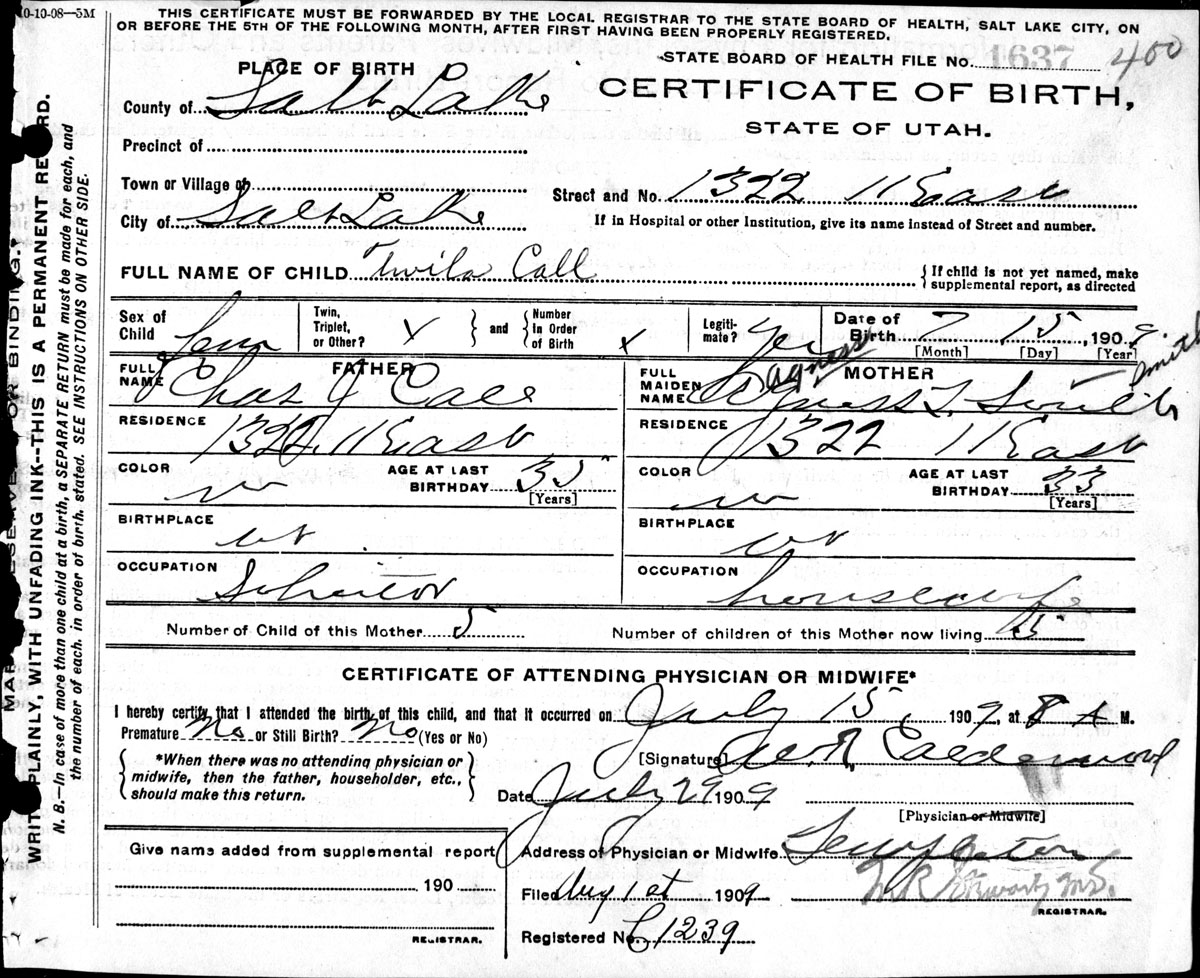 0-10-08—5M
THIS CERTIFICATE MUST BE FORWARDED BY THE LOCAL REGISTRAR TO THE STATE BOARD OF HEALTH, SALT LAKE CITY, ON
OR BEFORE THE 5TH OF THE FOLLOWING MONTH, AFTER FIRST HAVING BEEN PROPERLY REGISTERED.
STATE BOARD OF HEALTH FILE No. 1637 400
PLACE OF BIRTH
CERTIFICATE OF BIRTH,
STATE OF UTAH.
County of Salt Lake
Precinct of
Town or Village of
Street and No. 1322 11 East
City of Salt Lake
If in Hospital or other Institution, give its name instead of Street and number.
FULL NAME OF CHILD Twila Call
{ If child is not yet named, make
supplemental report, as directed
Sex of Child Fem
Twin, Triplet, or Other? x } and { Number in Order of Birth x
Legiti-mate? Yes
Date of Birth 7 15, 1909
[Month] [Day] [Year]
FATHER
FULL NAME Chas J Call
MOTHER
Agness Smith
FULL MAIDEN NAME Agness L. Smith
RESIDENCE 1322 11 East
RESIDENCE 1322 11 East
COLOR w
AGE AT LAST BIRTHDAY 35 [Years]
COLOR w
AGE AT LAST BIRTHDAY 33 [Years]
BIRTHPLACE ut
BIRTHPLACE ut
OCCUPATION Solicitor
OCCUPATION housewife
Number of Child of this Mother 5
Number of children of this Mother now living 5
CERTIFICATE OF ATTENDING PHYSICIAN OR MIDWIFE*
I hereby certify that I attended the birth of this child, and that it occurred on July 15, 1909, at 8 A M.
Premature No or Still Birth? No (Yes or No)
{ *When there was no attending physician or
midwife, then the father, householder, etc.,
should make this return. }
[Signature] Calderwood
Date July 29 1909
[Physician or Midwife]
Give name added from supplemental report
Address of Physician or Midwife Templeton
190
Filed Aug 1st 1909
M.D.
REGISTRAR.
REGISTRAR.
Registered No. C1239
WRITE PLAINLY, WITH UNFADING INK--THIS IS A PERMANENT RECORD.
N. B.—In case of more than one child at a birth, a SEPARATE RETURN must be made for each, and
the number of each, in order of birth, stated. SEE INSTRUCTIONS ON OTHER SIDE.
FOR BINDING.